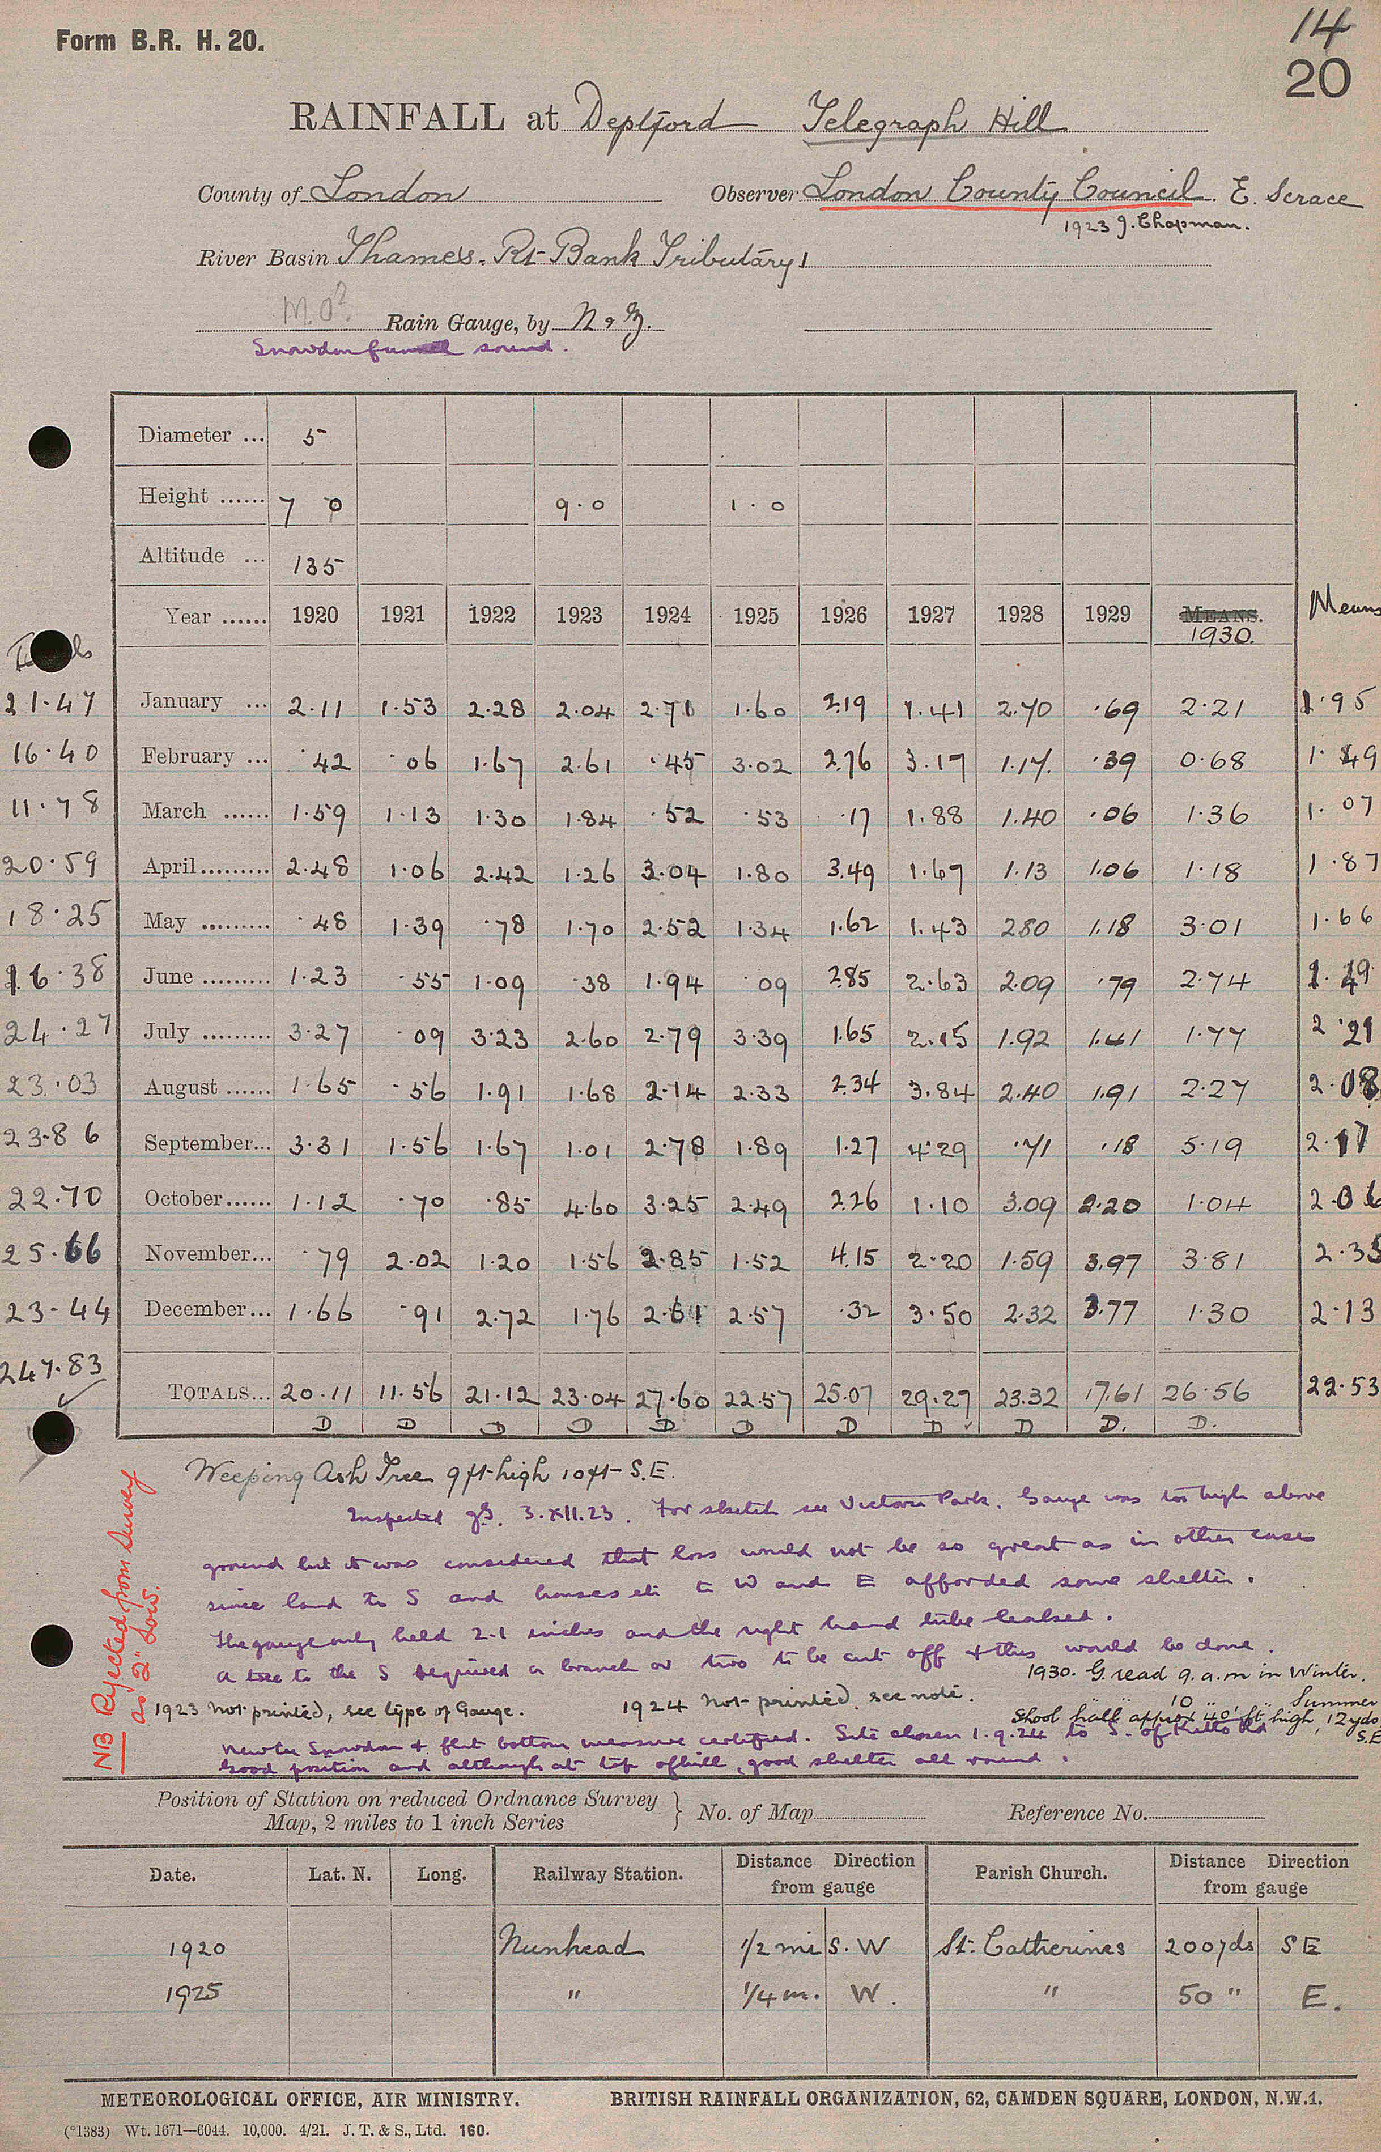 Form B.R. H. 20.
14
20
RAINFALL at Deptford Telegraph Hill
County of London Observer London County Council. E. Scrace
1923 J. Chapman.
River Basin Thames. Rt Bank Tributary 1
M.O? Rain Gauge, by N & Z.
Snowdon funnel sound.
Diameter ... 5
Height ...... 7 0 9.0 1.0
Altitude ... 135
Year ...... 1920 1921 1922 1923 1924 1925 1926 1927 1928 1929 MEANS. 1930. Means
Totals
21.47 January ... 2.11 1.53 2.28 2.04 2.71 1.60 2.19 1.41 2.70 .69 2.21 1.95
16.40 February ... .42 .06 1.67 2.61 .45 3.02 2.76 3.17 1.17 .39 0.68 1.49
11.78 March ...... 1.59 1.13 1.30 1.84 .52 .53 .17 1.88 1.40 .06 1.36 1.07
20.59 April......... 2.48 1.06 2.42 1.26 3.04 1.80 3.49 1.67 1.13 1.06 1.18 1.87
18.25 May ......... .48 1.39 .78 1.70 2.52 1.34 1.62 1.43 2.80 1.18 3.01 1.66
16.38 June ......... 1.23 .55 1.09 .38 1.94 .09 2.85 2.63 2.09 .79 2.74 1.49
24.27 July ......... 3.27 .09 3.23 2.60 2.79 3.39 1.65 2.15 1.92 1.41 1.77 2.21
23.03 August ...... 1.65 .56 1.91 1.68 2.14 2.33 2.34 3.84 2.40 1.91 2.27 2.08
23.86 September... 3.31 1.56 1.67 1.01 2.78 1.89 1.27 4.29 .71 .18 5.19 2.17
22.70 October...... 1.12 .70 .85 4.60 3.25 2.49 2.26 1.10 3.09 2.20 1.04 2.06
25.66 November... .79 2.02 1.20 1.56 2.85 1.52 4.15 2.20 1.59 3.97 3.81 2.33
23.44 December... 1.66 .91 2.72 1.76 2.61 2.57 .32 3.50 2.32 3.77 1.30 2.13
247.83 TOTALS... 20.11 11.56 21.12 23.04 27.60 22.57 25.07 29.27 23.32 17.61 26.56 22.53
D D D D D D D D D D. D.
Weeping Ash Tree 9 ft high 10 ft S.E.
Inspected 3.XII.23. For sketch see Victoria Park. Gauge was too high above
ground but it was considered that loss would not be so great as in other cases
since land to S and houses etc to W and E afforded some shelter.
The gauge only held 2.1 inches and the right hand tube leaked.
A tree to the S required a branch or two to be cut off & this would be done.
1930. G. read 9.a.m in Winter.
10 " " " Summer
1923 not printed, see type of Gauge. 1924 not printed. see note.
School hall approx 40 ft high, 12 yds S.E
Newly Snowdon & flat bottom measure certified. Site chosen 1.9.24 to S. of Kitto Rd
Good position and although at top of hill, good shelter all round.
NB Rejected from Survey
as 2" low.
Position of Station on reduced Ordnance Survey
Map, 2 miles to 1 inch Series } No. of Map Reference No.
Date. Lat. N. Long. Railway Station. Distance Direction from gauge Parish Church. Distance Direction from gauge
1920 Nunhead 1/2 mi S.W St. Catherines 200 yds SE
1925 " 1/4 m. W. " 50 " E.
METEOROLOGICAL OFFICE, AIR MINISTRY. BRITISH RAINFALL ORGANIZATION, 62, CAMDEN SQUARE, LONDON, N.W.1.
(*1383) Wt. 1671—6044. 10,000. 4/21. J. T. & S., Ltd. 160.